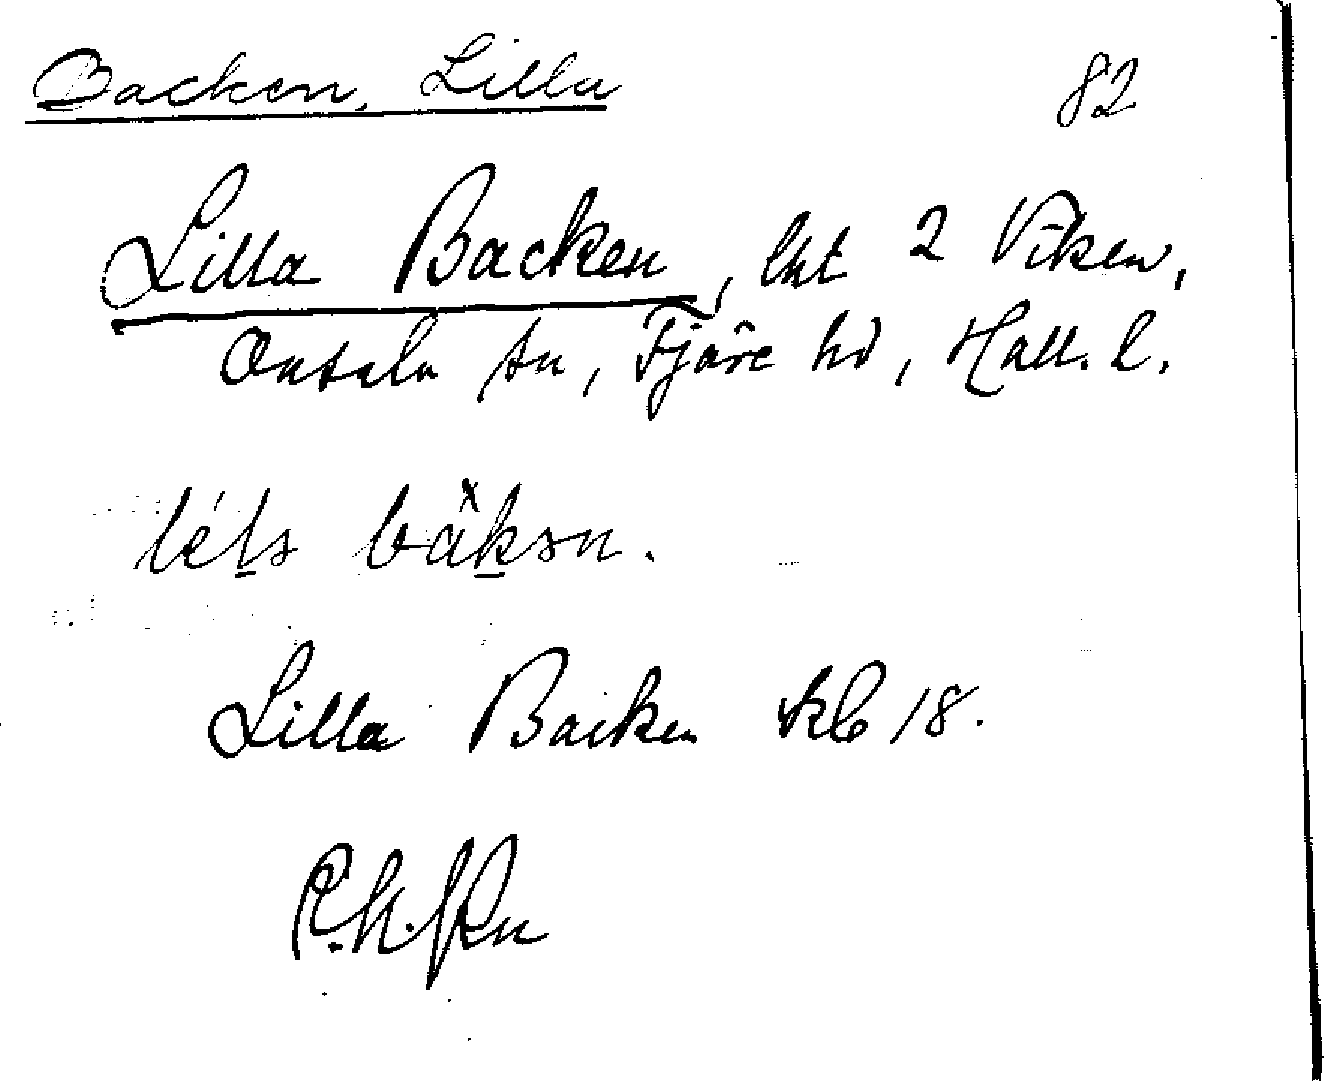 Backen, Lilla 82
Lilla Backen, lht 2 Viken,
Onsala sn, Fjäre hd, Hall. l.
Lilla Backen kb 18.